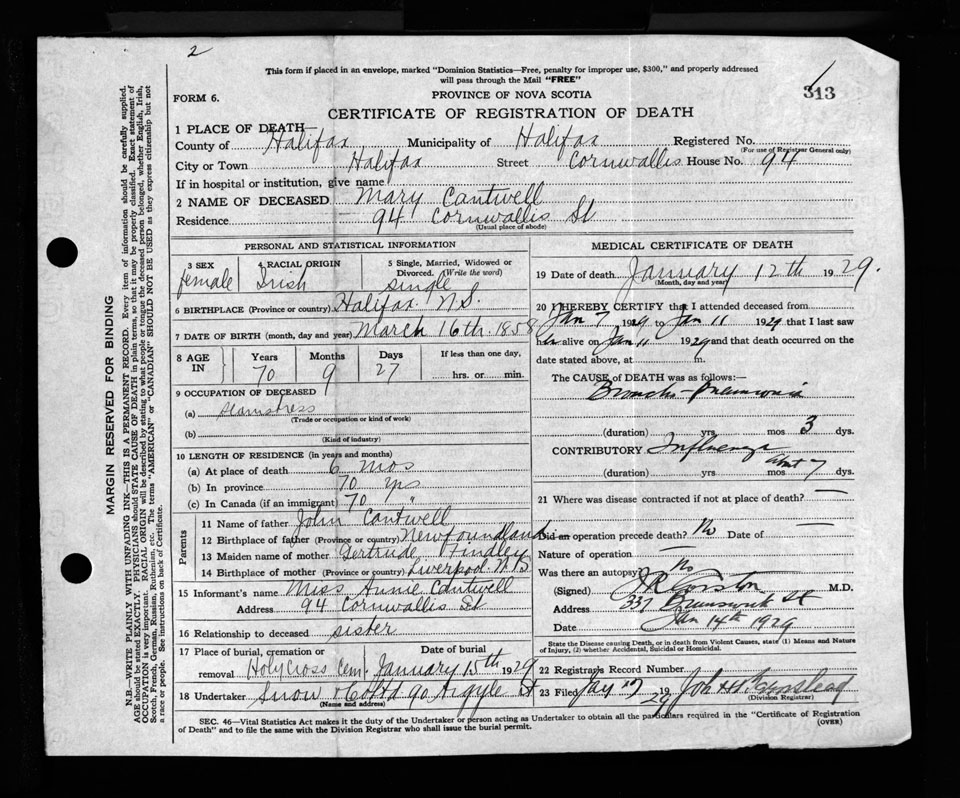 2
This form if placed in an envelope, marked "Dominion Statistics—Free, penalty for improper use, $300," and properly addressed
will pass through the Mail "FREE"
FORM 6.
PROVINCE OF NOVA SCOTIA
313
CERTIFICATE OF REGISTRATION OF DEATH
1 PLACE OF DEATH
County of Halifax Municipality of Halifax Registered No.
(For use of Registrar General only)
City or Town Halifax Street Cornwallis House No. 94
If in hospital or institution, give name
2 NAME OF DECEASED Mary Cantwell
Residence 94 Cornwallis St
(Usual place of abode)
PERSONAL AND STATISTICAL INFORMATION
3 SEX
female
4 RACIAL ORIGIN
Irish
5 Single, Married, Widowed or
Divorced. (Write the word)
single
6 BIRTHPLACE (Province or country) Halifax N.S.
7 DATE OF BIRTH (month, day and year) March 16th 1858
8 AGE IN
Years Months Days If less than one day,
70 9 27 hrs. or min.
9 OCCUPATION OF DECEASED
(a) Seamstress
(Trade or occupation or kind of work)
(b)
(Kind of industry)
10 LENGTH OF RESIDENCE (in years and months)
(a) At place of death 6 mos
(b) In province 70 yrs
(c) In Canada (if an immigrant) 70 "
Parents
11 Name of father John Cantwell
12 Birthplace of father (Province or country) Newfoundland
13 Maiden name of mother Gertrude Findley
14 Birthplace of mother (Province or country) Liverpool N.S
15 Informant's name Miss Annie Cantwell
Address 94 Cornwallis St
16 Relationship to deceased sister
17 Place of burial, cremation or Date of burial
removal Holy Cross Cem. January 15th 1929
18 Undertaker Snow & Co Ltd 90 Argyle St
(Name and address)
MEDICAL CERTIFICATE OF DEATH
19 Date of death January 12th 1929.
(Month, day and year)
20 I HEREBY CERTIFY that I attended deceased from
Jan 7 1929 to Jan 11 1929 that I last saw
her alive on Jan 11 1929 and that death occurred on the
date stated above, at m.
The CAUSE of DEATH was as follows:—
Broncho-pneumonia
(duration) yrs. mos 3 dys.
CONTRIBUTORY Influenza
(duration) yrs. mos about 7 dys.
21 Where was disease contracted if not at place of death? —
Did an operation precede death? No Date of —
Nature of operation —
Was there an autopsy? No
(Signed) M.D.
Address 337 Brunswick St
Date Jan 14th 1929
State the Disease causing Death, or in death from Violent Causes, state (1) Means and Nature
of Injury, (2) whether Accidental, Suicidal or Homicidal.
22 Registrars Record Number
23 Filed Jany 17 1929 John H
(Division Registrar)
SEC. 46—Vital Statistics Act makes it the duty of the Undertaker or person acting as Undertaker to obtain all the particulars required in the "Certificate of Registration
of Death" and to file the same with the Division Registrar who shall issue the burial permit.
(OVER)
MARGIN RESERVED FOR BINDING
N.B.—WRITE PLAINLY WITH UNFADING INK—THIS IS A PERMANENT RECORD. Every item of information should be carefully supplied.
AGE should be stated EXACTLY. PHYSICIANS should STATE CAUSE OF DEATH in plain terms, so that it may be properly classified. Exact statement of
OCCUPATION is very important. RACIAL ORIGIN will be described by stating to what people or tongue the deceased person belonged, whether English, Irish,
Scotch, French, German, Russian, Ruthenian, etc. The terms "AMERICAN" or "CANADIAN" SHOULD NOT BE USED as they express citizenship but not
a race or people. See instructions on back of Certificate.